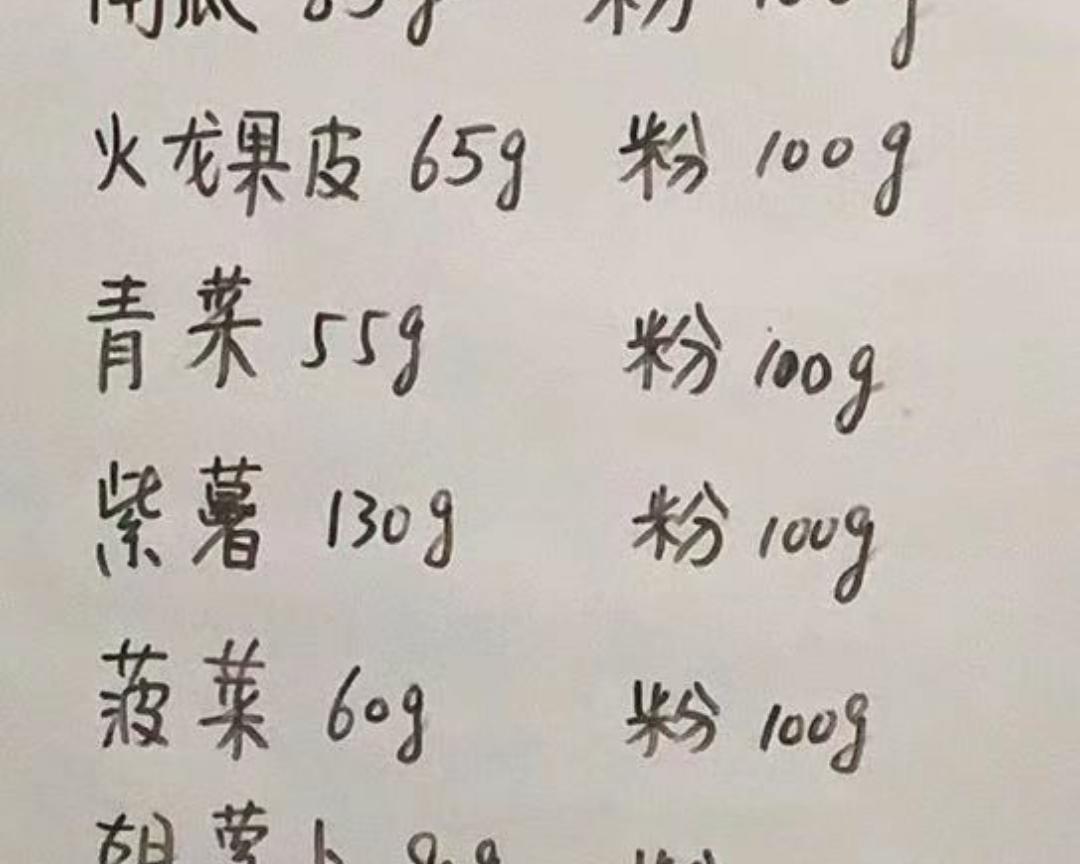 南瓜 85g 粉 100g
火龙果皮 65g 粉 100g
青菜 55g 粉 100g
紫薯 130g 粉 100g
菠菜 60g 粉 100g
胡萝卜